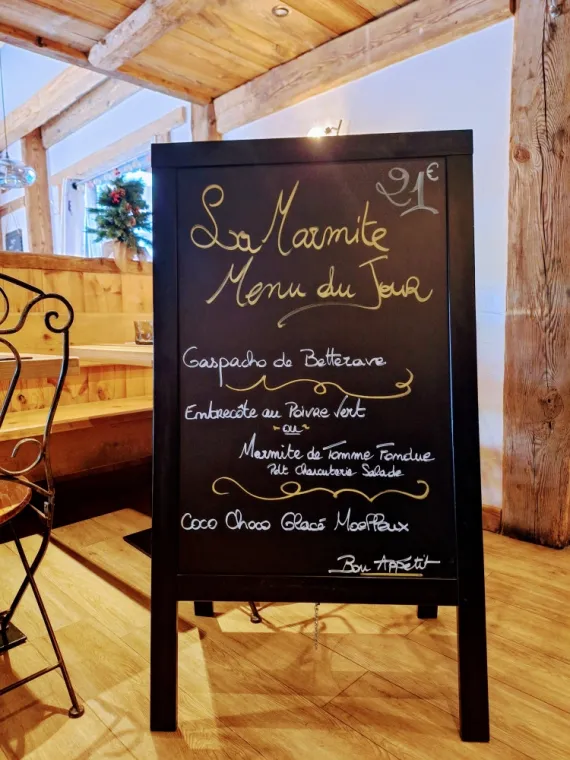 21€
La Marmite
Menu du Jour
Gaspacho de Betterave
Entrecôte au Poivre Vert
~ou~
Marmite de Tomme Fondue
Pdt Charcuterie Salade
Coco Choco Glacé Moelleux
Bon Appétit